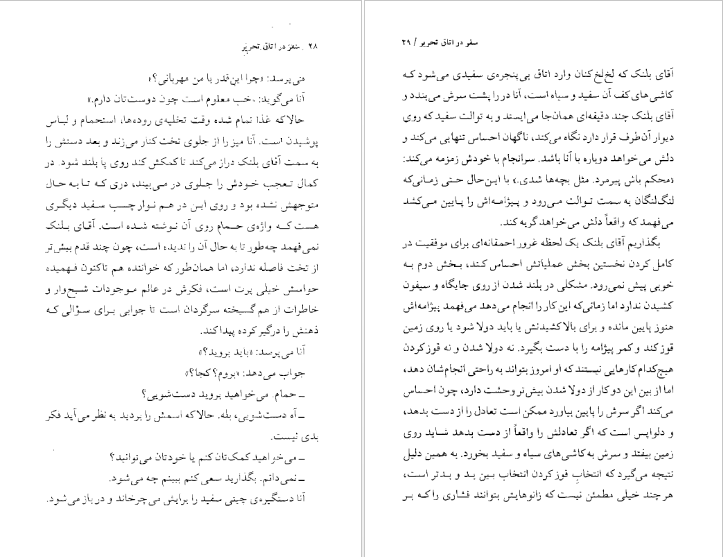 ۲۸ . سفر در اتاق تحریر
می‌پرسد: «چرا این‌قدر با من مهربانی؟»
آنا می‌گوید: «خب معلوم است چون دوست‌تان دارم.»
حالا که غذا تمام شده وقت تخلیه‌ی روده‌ها، استحمام و لباس
پوشیدن است. آنا میز را از جلوی تخت کنار می‌زند و بعد دستش را
به سمت آقای بلنک دراز می‌کند تا کمکش کند روی پا بلند شود. در
کمال تعجب خودش را جلوی در می‌بیند، دری که تا به حال
متوجهش نشده بود و روی این در هم نوار چسب سفید دیگری
هست که واژه‌ی حمام روی آن نوشته شده است. آقای بلنک
نمی‌فهمد چه‌طور تا به حال آن را ندیده است، چون چند قدم بیش‌تر
از تخت فاصله ندارد، اما همان‌طور که خواننده هم تاکنون فهمیده
حواسش خیلی پرت است، فکرش در عالم موجودات شبح‌وار و
خاطرات از هم گسیخته سرگردان است تا جوابی برای سؤالی که
ذهنش را درگیر کرده پیدا کند.
آنا می‌پرسد: «باید بروید؟»
جواب می‌دهد: «بروم؟ کجا؟»
ـ حمام. می‌خواهید بروید دست‌شویی؟
ـ آه دست‌شویی، بله. حالا که اسمش را بردید به نظر می‌آید فکر
بدی نیست.
ـ می‌خواهید کمک‌تان کنم یا خودتان می‌توانید؟
ـ نمی‌دانم. بگذارید سعی کنم ببینم چه می‌شود.
آنا دستگیره‌ی چینی سفید را برایش می‌چرخاند و در باز می‌شود.
سفر در اتاق تحریر / ۲۹
آقای بلنک که لخ‌لخ‌کنان وارد اتاق بی‌پنجره‌ی سفیدی می‌شود که
کاشی‌های کف آن سفید و سیاه است، آنا در را پشت سرش می‌بندد و
آقای بلنک چند دقیقه‌ای همان‌جا می‌ایستد و به توالت سفید که روی
دیوار آن‌طرف قرار دارد نگاه می‌کند، ناگهان احساس تنهایی می‌کند و
دلش می‌خواهد دوباره با آنا باشد. سرانجام با خودش زمزمه می‌کند:
«محکم باش پیرمرد. مثل بچه‌ها شدی.» با این‌حال حتی زمانی‌که
لنگ‌لنگان به سمت توالت می‌رود و پیژامه‌اش را پایین می‌کشد
می‌فهمد که واقعاً دلش می‌خواهد گریه کند.
بگذاریم آقای بلنک یک لحظه غرور احمقانه‌ای برای موفقیت در
کامل کردن نخستین بخش عملیاتش احساس کند، بخش دوم به
خوبی پیش نمی‌رود. مشکلی در بلند شدن از روی جایگاه و سیفون
کشیدن ندارد اما زمانی‌که این کار را انجام می‌دهد می‌فهمد پیژامه‌اش
هنوز پایین مانده و برای بالا کشیدنش یا باید دولا شود یا روی زمین
قوز کند و کمر پیژامه را با دست بگیرد. نه دولا شدن و نه قوز کردن
هیچ‌کدام کارهایی نیستند که او امروز بتواند به راحتی انجام‌شان دهد،
اما از بین این دو کار از دولا شدن بیش‌تر وحشت دارد، چون احساس
می‌کند اگر سرش را پایین بیاورد ممکن است تعادل را از دست بدهد،
و دلواپس است که اگر تعادلش را واقعاً از دست بدهد شاید روی
زمین بیفتد و سرش به کاشی‌های سیاه و سفید بخورد. به همین دلیل
نتیجه می‌گیرد که انتخاب قوز کردن انتخاب بین بد و بدتر است،
هرچند خیلی مطمئن نیست که زانوهایش بتوانند فشاری را که بر